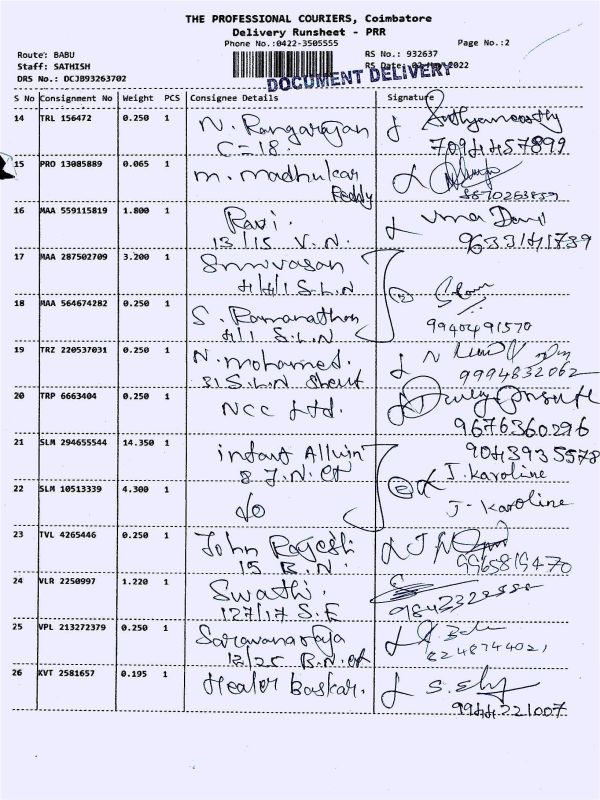 THE PROFESSIONAL COURIERS, Coimbatore
Delivery Runsheet - PRR
Phone No.:0422-3505555
Page No.:2
Route: BABU
RS No.: 932637
Staff: SATHISH
RS Date: 03-May-2022
DRS No.: DCJB93263702
DOCUMENT DELIVERY
S No Consignment No Weight PCS Consignee Details Signature
14 TRL 156472 0.250 1 N. Rangarajan
C=18. 7094457899
15 PRO 13085889 0.065 1 M. Madhukar
Reddy
16 MAA 559115819 1.800 1 Ravi. Uma Devi
13/15 V.N. 9633141739
17 MAA 287502709 3.200 1 Srinivasan
4/4/1 S.L.N
18 MAA 564674282 0.250 1 S. Ramanathan
4/1 S.L.N 9940491570
19 TRZ 220537031 0.250 1 N. Mohamed.
31 S.L.N Street 9994832062
20 TRP 6663404 0.250 1 NCC Ltd.
9676360296
21 SLM 294655544 14.350 1 infant Alluin 9043935578
8 J.N. Ct J. Karoline
22 SLM 10513339 4.300 1 do J- Karoline
23 TVL 4265446 0.250 1 John Rajesh
15 B.N. 9965819470
24 VLR 2250997 1.220 1 Swathi.
127/17 S.E
25 VPL 213272379 0.250 1 Saravanaraja
13/25 B.N. Ct 8248744021
26 KVT 2581657 0.195 1 Healer Baskar.
9944221007